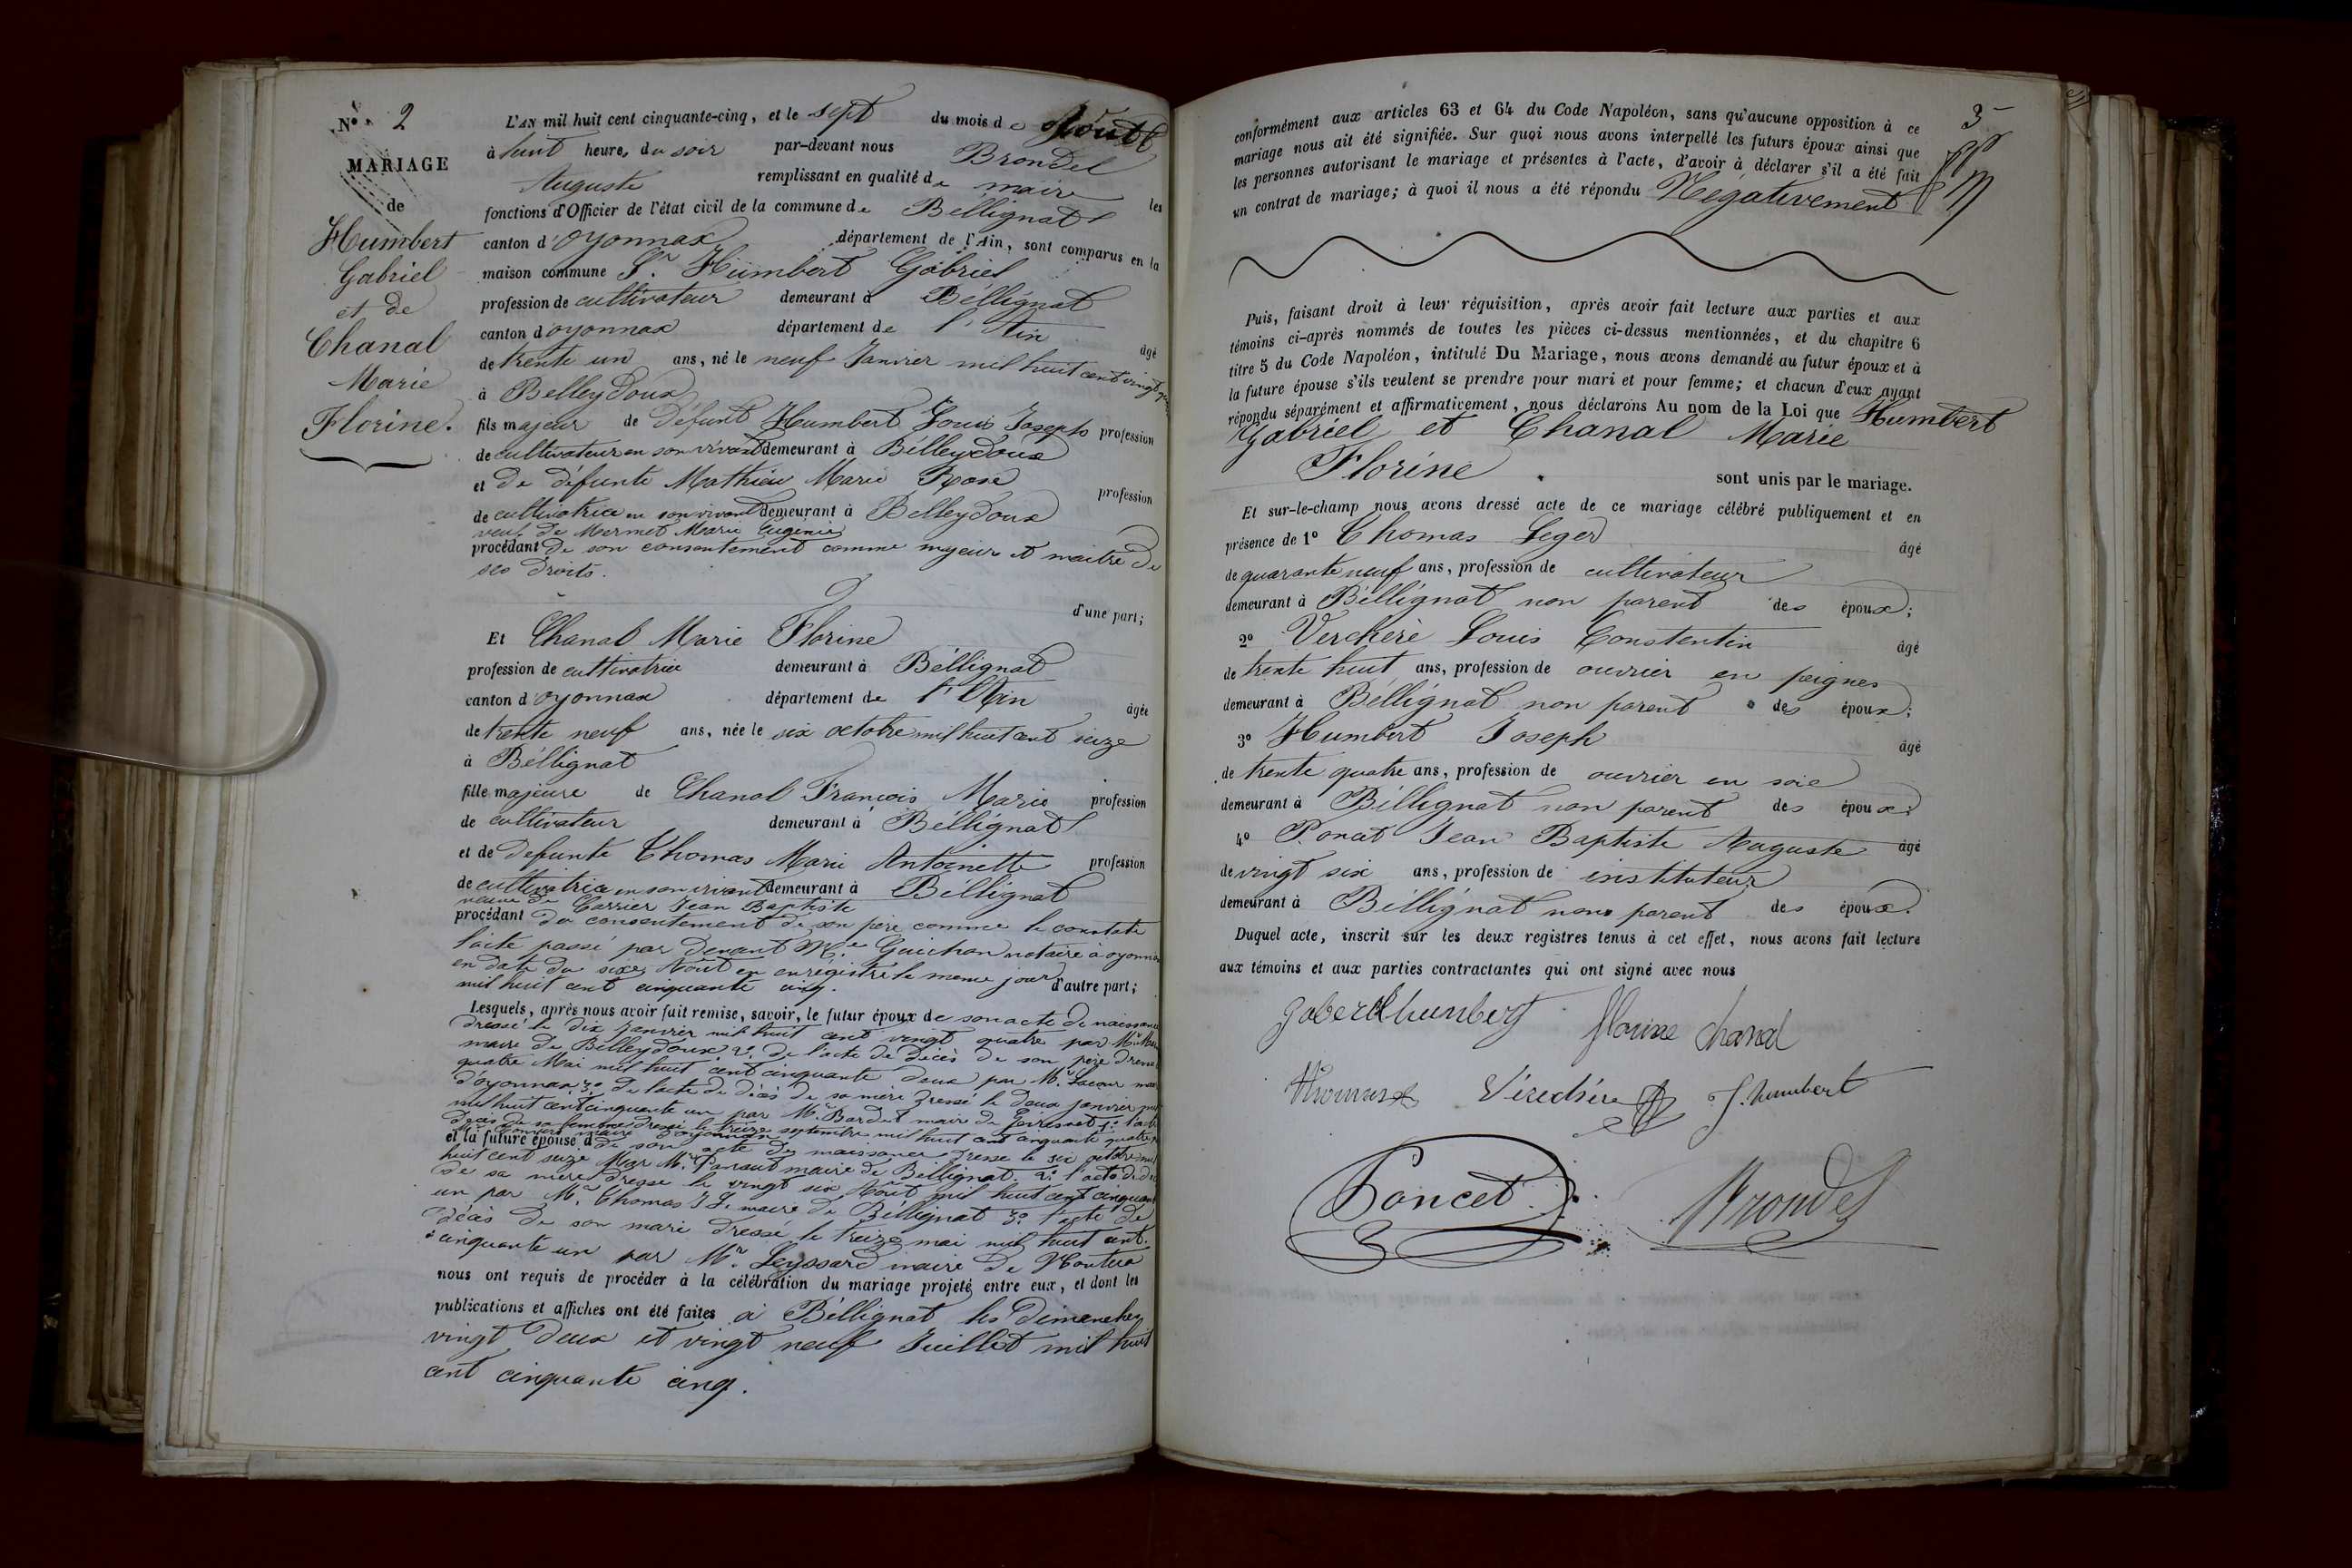 N° 2
MARIAGE
de
Humbert
Gabriel
et de
Chanal
Marie
Florine.
L'AN mil huit cent cinquante-cinq, et le sept du mois de Aout
à huit heures du soir par-devant nous Brondel
Auguste remplissant en qualité de maire les
fonctions d'Officier de l'état civil de la commune de Béllignat
canton d'oyonnax département de l'Ain, sont comparus en la
maison commune Sr. Humbert Gabriel
profession de cultivateur demeurant à Béllignat
canton d'oyonnax département de l'Ain âgé
de trente un ans, né le neuf Janvier mil huit cent vingt
à Belleydoux
fils majeur de défunt Humbert Louis Joseph profession
de cultivateur en son vivant demeurant à Bélleydoux
et de défunte Mathieu Marie Rose profession
de cultivatrice en son vivant demeurant à Bélleydoux
veuf de Mermet Marie Eugénie
procédant de son consentement comme majeur et maitre de
ses droits.
d'une part;
Et Chanal Marie Florine
profession de cultivatrice demeurant à Béllignat
canton d'oyonnax département de l'Ain âgée
de trente neuf ans, née le six octobre mil huit cent seize
à Béllignat
fille majeure de Chanal François Marie profession
de cultivateur demeurant à Béllignat
et de defunte Thomas Marie Antoinette profession
de cultivatrice en son vivant demeurant à Béllignat
veuve de Carrier Jean Baptiste
procédant du consentement de son père comme le constate
l'acte passé par devant Me. Guichon notaire à oyonnax
en date du six Aout en enrégistré le meme jour
mil huit cent cinquante cinq. d'autre part;
Lesquels, après nous avoir fait remise, savoir, le futur époux de son acte de naissance
dressé le dix janvier mil huit cent vingt quatre par Mr
maire de Bélleydoux 2°. de l'acte de décès de son père dressé
quatre Mai mil huit cent cinquante deux par Mr. Lacour
d'oyonnax 3° de l'acte de décès de sa mère dressé le deux janvier
mil huit cent cinquante un par Mr. Bardet maire de
décès de sa femme dressé le treize septembre mil huit cent cinquante quatre
maire d'oyonnax
et la future épouse de son acte de naissance dressé le six octobre mil
huit cent seize par Mr. maire de Béllignat 2°. l'acte de
de sa mère dressé le vingt six Aout mil huit cent cinquante
un par Mr. Thomas J L. maire de Béllignat 3° l'acte de
décès de son mari dressé le treize mai mil huit cent
cinquante un par Mr. Leyssard maire de
nous ont requis de procéder à la célébration du mariage projeté entre eux, et dont les
publications et affiches ont été faites à Béllignat les dimanches
vingt deux et vingt neuf Juillet mil huit
cent cinquante cinq.
3
conformément aux articles 63 et 64 du Code Napoléon, sans qu'aucune opposition à ce
mariage nous ait été signifiée. Sur quoi nous avons interpellé les futurs époux ainsi que
les personnes autorisant le mariage et présentes à l'acte, d'avoir à déclarer s'il a été fait
un contrat de mariage; à quoi il nous a été répondu Négativement
Puis, faisant droit à leur réquisition, après avoir fait lecture aux parties et aux
témoins ci-après nommés de toutes les pièces ci-dessus mentionnées, et du chapitre 6
titre 5 du Code Napoléon, intitulé Du Mariage, nous avons demandé au futur époux et à
la future épouse s'ils veulent se prendre pour mari et pour femme; et chacun d'eux ayant
répondu séparément et affirmativement, nous déclarons Au nom de la Loi que Humbert
Gabriel et Chanal Marie
Florine sont unis par le mariage.
Et sur-le-champ nous avons dressé acte de ce mariage célébré publiquement et en
présence de 1° Thomas Leger âgé
de quarante neuf ans, profession de cultivateur
demeurant à Béllignat non parent des époux;
2° Verchère Louis Constentin âgé
de trente huit ans, profession de ouvrier en peignes
demeurant à Béllignat non parent des époux;
3° Humbert Joseph âgé
de trente quatre ans, profession de ouvrier en soie
demeurant à Béllignat non parent des époux;
4° Poncet Jean Baptiste Auguste âgé
de vingt six ans, profession de instituteur
demeurant à Béllignat non parent des époux.
Duquel acte, inscrit sur les deux registres tenus à cet effet, nous avons fait lecture
aux témoins et aux parties contractantes qui ont signé avec nous
florine chanal
Thomas J. humbert
Poncet Brondel